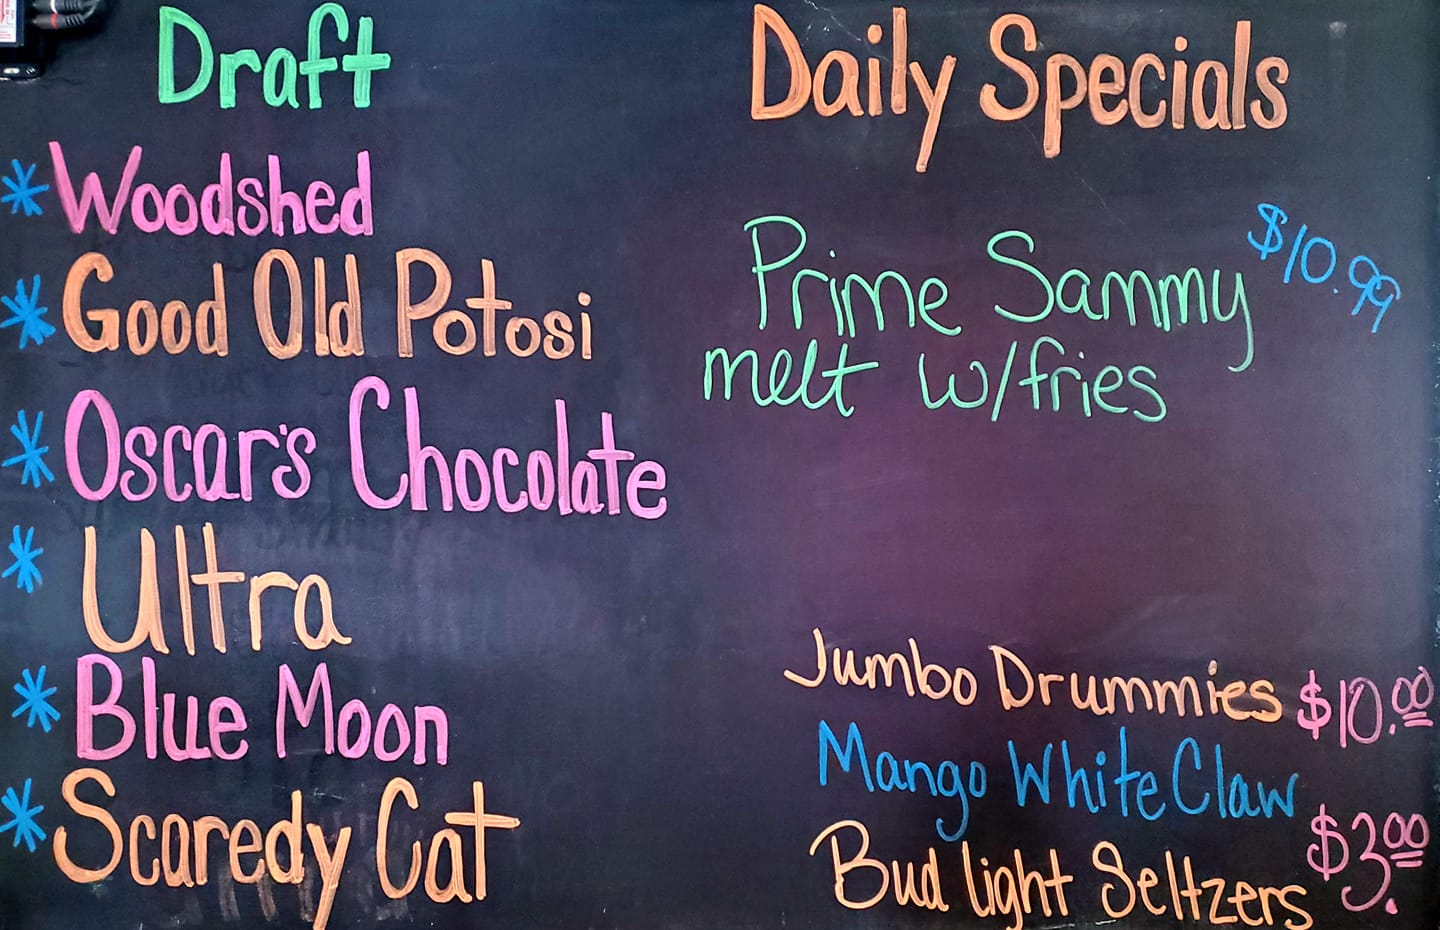 Draft
* Woodshed
* Good Old Potosi
* Oscar's Chocolate
* Ultra
* Blue Moon
* Scaredy Cat
Daily Specials
Prime Sammy $10.99
melt w/fries
Jumbo Drummies $10.00
Mango White Claw
$3.00
Bud light Seltzers